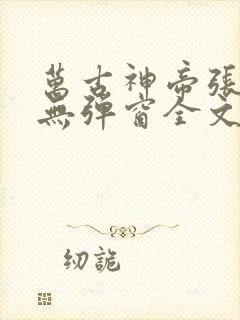 萬古神帝張
無彈窗全文
紉詭